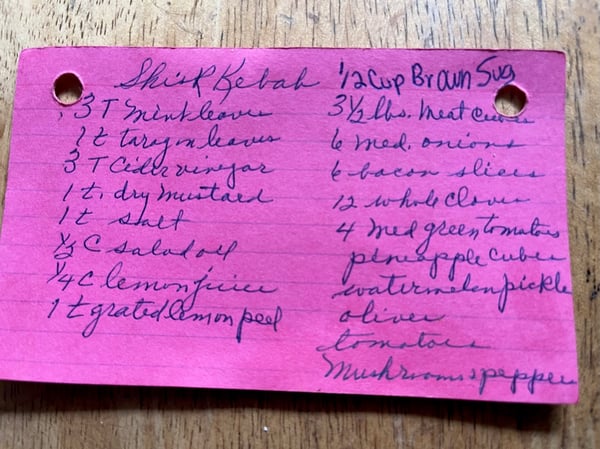 Shish Kebab
3 T mint leaves
1 t taragon leaves
3 T Cider vinegar
1 t. dry mustard
1 t salt
1/2 C salad oil
1/4 C lemon juice
1 t grated lemon peel
1/2 Cup Brown Sug
3 1/2 lbs. meat cubes
6 med. onions
6 bacon slices
12 whole cloves
4 med green tomatoes
pineapple cubes
watermelon pickle
olives
tomatoes
Mushrooms & pepper